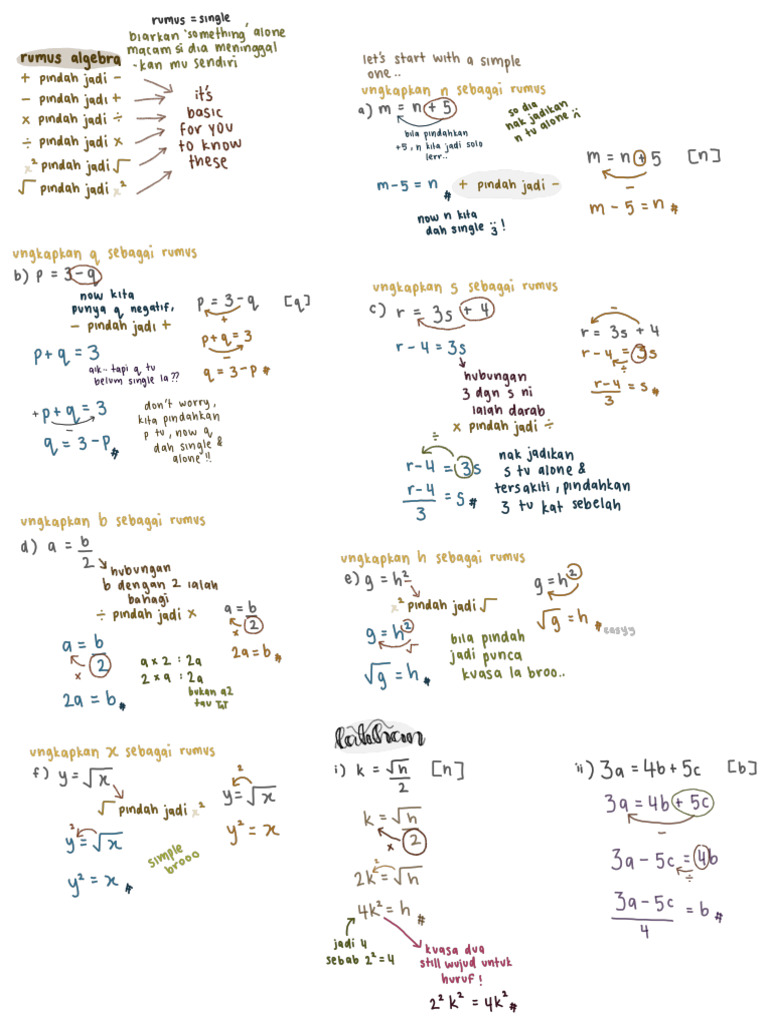 rumus = single
biarkan 'something' alone
macam si dia meninggal
-kan mu sendiri
rumus algebra
+ pindah jadi -
- pindah jadi +
× pindah jadi ÷
÷ pindah jadi ×
x² pindah jadi √
√ pindah jadi x²
it's
basic
for you
to know
these
let's start with a simple
one..
ungkapkan n sebagai rumus
a) m = n + 5
so dia
nak jadikan
n tu alone :(
bila pindahkan
+5, n kita jadi solo
lerr..
m - 5 = n #
+ pindah jadi -
now n kita
dah single :3 !
m = n + 5 [n]
-
m - 5 = n #
ungkapkan q sebagai rumus
b) p = 3 - q
now kita
punya q negatif,
- pindah jadi +
p + q = 3
aik.. tapi q tu
belum single la??
+p + q = 3
-
q = 3 - p #
don't worry,
kita pindahkan
p tu, now q
dah single &
alone!!
p = 3 - q [q]
+
p + q = 3
-
q = 3 - p #
ungkapkan s sebagai rumus
c) r = 3s + 4
r - 4 = 3s
hubungan
3 dgn s ni
ialah darab
× pindah jadi ÷
÷
r - 4 = 3s
r - 4
3
= s #
nak jadikan
s tu alone &
tersakiti, pindahkan
3 tu kat sebelah
-
r = 3s + 4
r - 4 = 3s
÷
r - 4
3
= s #
ungkapkan b sebagai rumus
d) a = b
2
hubungan
b dengan 2 ialah
bahagi
÷ pindah jadi ×
a = b
2
×
2a = b #
a × 2 : 2a
2 × a : 2a
bukan a2
tau TuT
a = b
2
×
2a = b #
ungkapkan h sebagai rumus
e) g = h²
x² pindah jadi √
g = h²
√
√g = h #
bila pindah
jadi punca
kuasa la broo..
g = h²
√g = h #
easyy
ungkapkan x sebagai rumus
f) y = √x
√ pindah jadi x²
2
y = √x
y² = x #
simple
brooo
2
y = √x
y² = x
latihan
i) k = √h [h]
2
k = √h
× 2
2
2k = √h
4k² = h #
jadi 4
sebab 2² = 4
kuasa dua
still wujud untuk
huruf!
2² k² = 4k² #
ii) 3a = 4b + 5c [b]
3a = 4b + 5c
-
3a - 5c = 4b
÷
3a - 5c
4
= b #